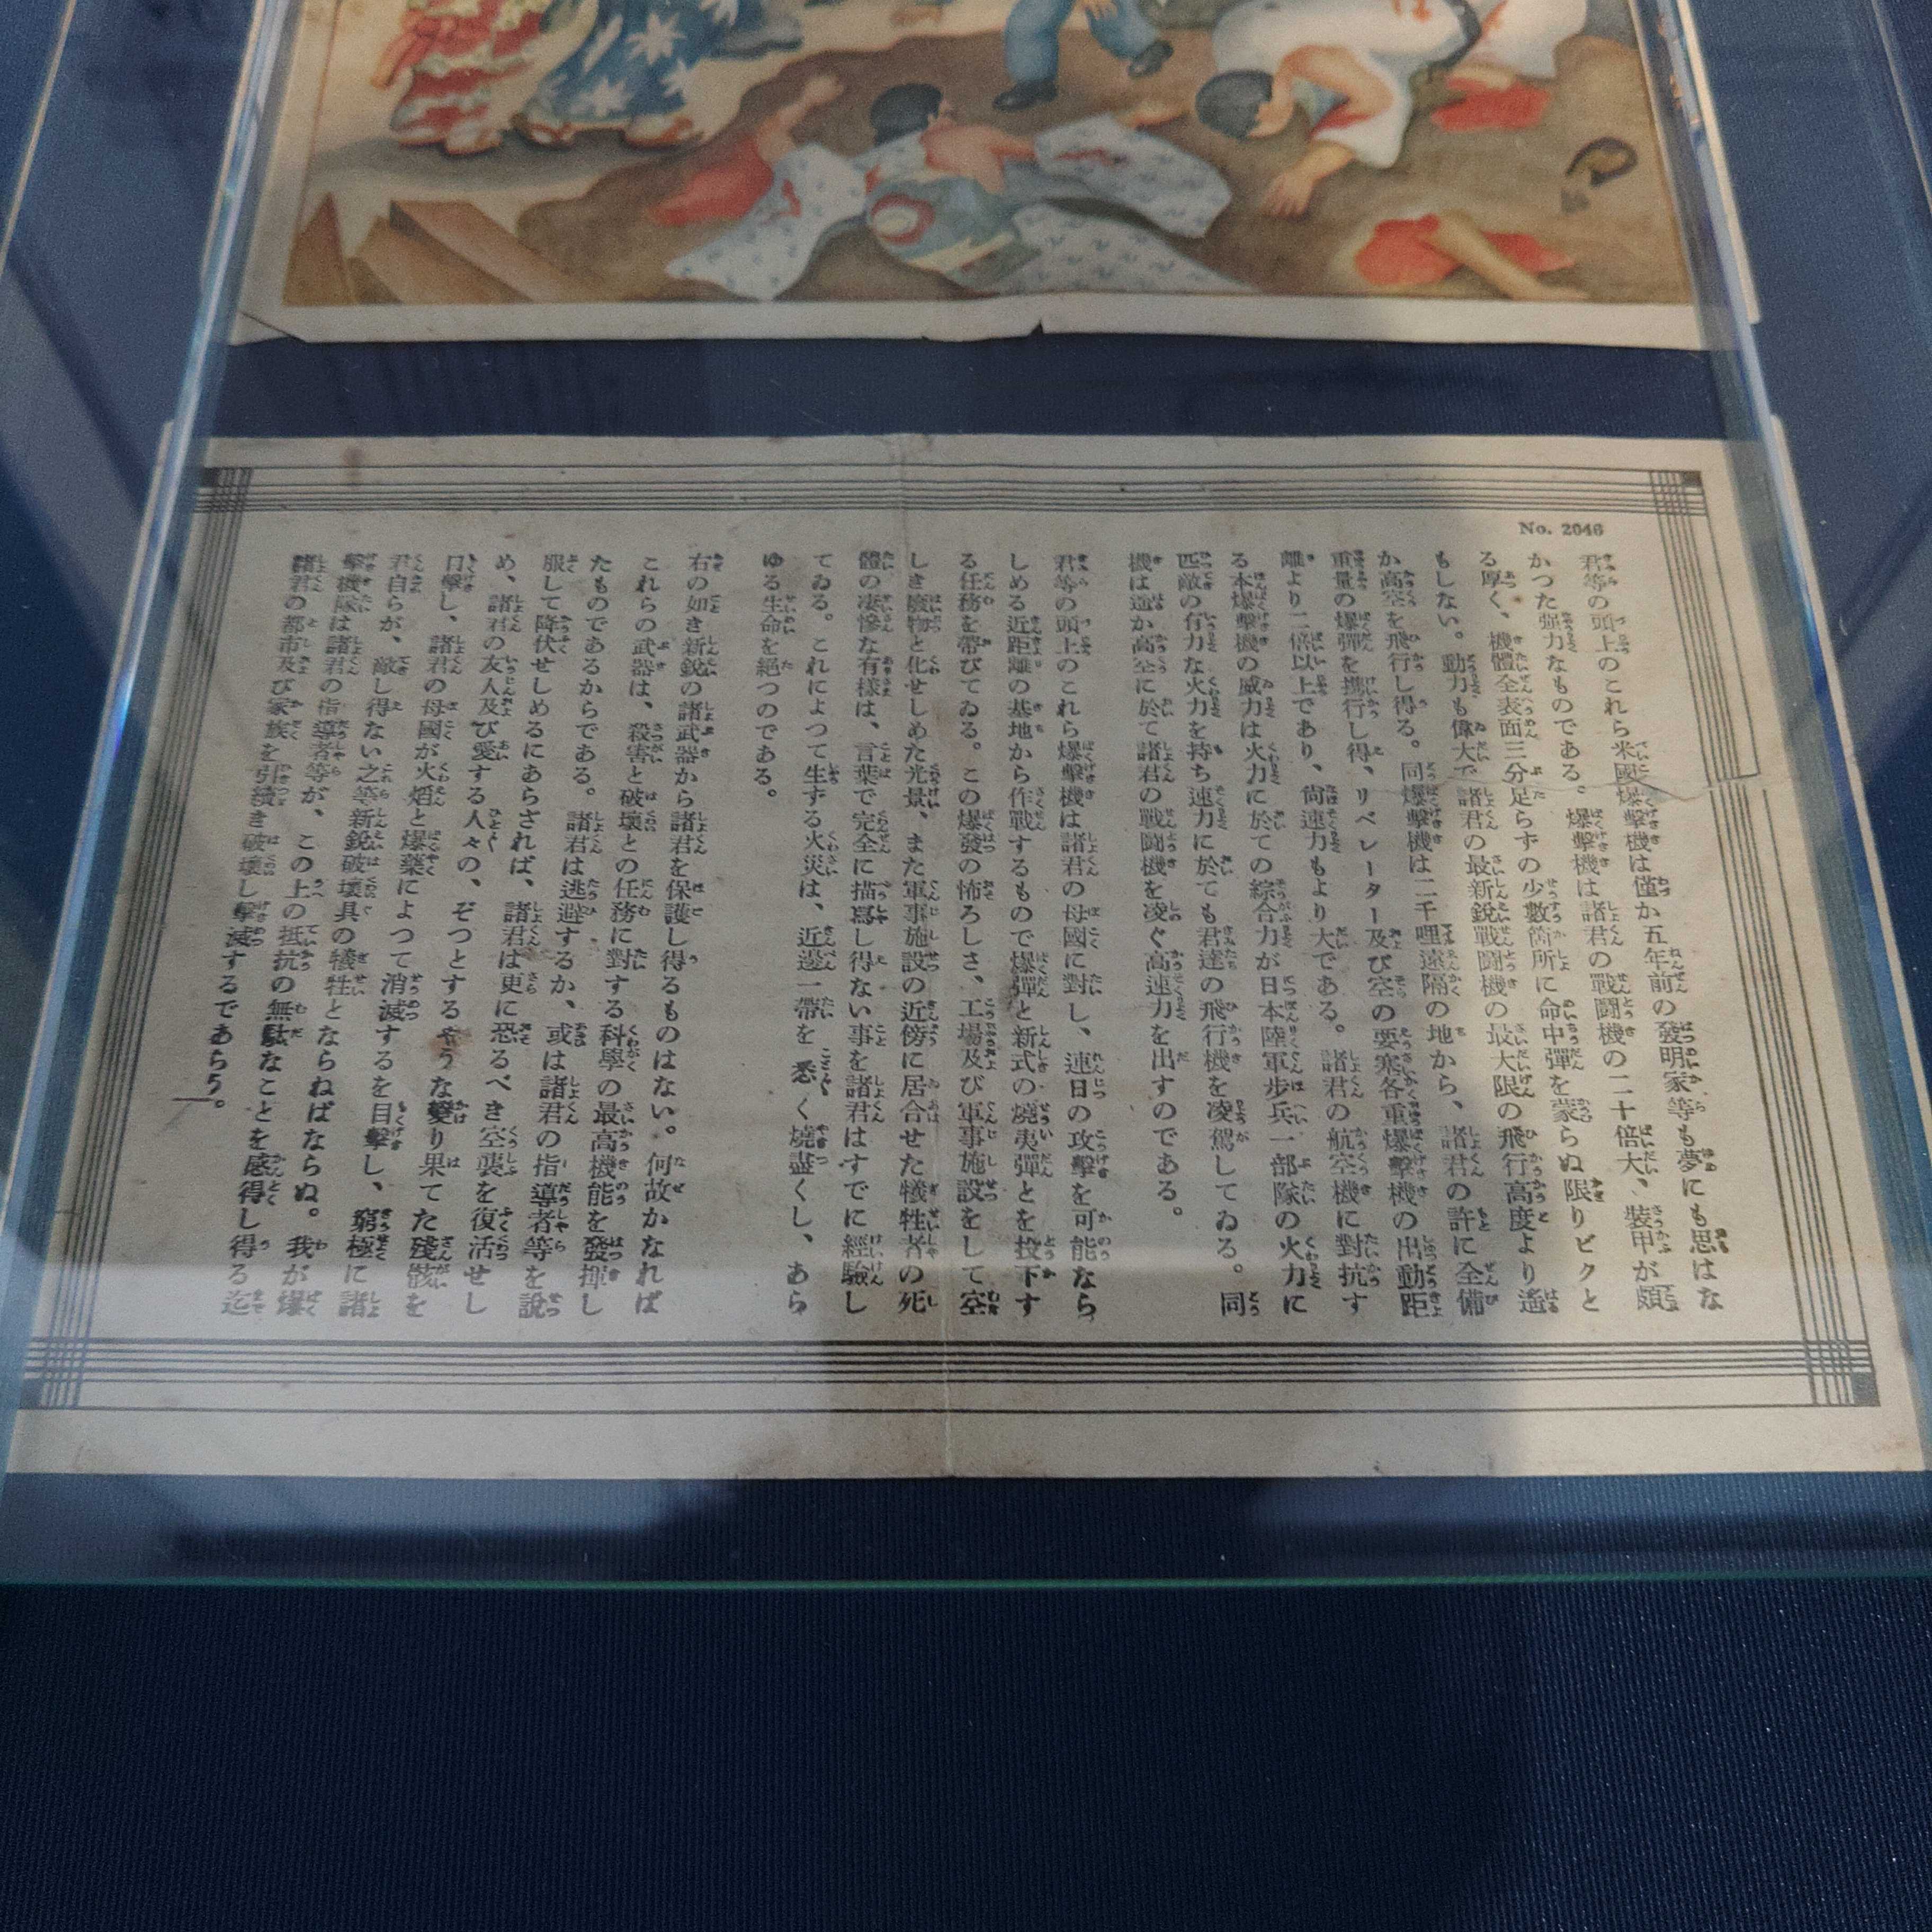 No. 2046
君等の頭上のこれら米國爆擊機は僅か五年前の發明家等も夢にも思はな
かつた强力なものである。爆擊機は諸君の戰鬪機の二十倍大、裝甲が頗
る厚く、機體全表面三分足らずの少數箇所に命中彈を蒙らぬ限りビクと
もしない。動力も偉大で諸君の最新銳戰鬪機の最大限の飛行高度より遙
か高空を飛行し得る。同爆擊機は二千哩遠隔の地から、諸君の許に全備
重量の爆彈を携行し得、リベレーター及び空の要塞各重爆擊機の出動距
離より二倍以上であり、尙速力もより大である。諸君の航空機に對抗す
る本爆擊機の威力は火力に於ての綜合力が日本陸軍步兵一部隊の火力に
匹敵の有力な火力を持ち速力に於ても君達の飛行機を凌駕してゐる。同
機は遙か高空に於て諸君の戰鬪機を凌ぐ高速力を出すのである。
君等の頭上のこれら爆擊機は諸君の母國に對し、連日の攻擊を可能なら
しめる近距離の基地から作戰するもので爆彈と新式の燒夷彈とを投下す
る任務を帶びてゐる。この爆發の怖ろしさ、工場及び軍事施設をして空
しき廢物と化せしめた光景、また軍事施設の近傍に居合せた犧牲者の死
體の凄慘な有樣は、言葉で完全に描寫し得ない事を諸君はすでに經驗し
てゐる。これによつて生する火災は、近邊一帶を悉く燒盡くし、あら
ゆる生命を絕つのである。
右の如き新銳の諸武器から諸君を保護し得るものはない。何故かなれば
これらの武器は、殺害と破壞との任務に對する科學の最高機能を發揮し
たものであるからである。諸君は逃避するか、或は諸君の指導者等を說
服して降伏せしめるにあらされば、諸君は更に恐るべき空襲を復活せし
め、諸君の友人及び愛する人々の、ぞつとするやうな變り果てた殘骸を
目擊し、諸君の母國が火焰と爆藥によつて消滅するを目擊し、窮極に諸
君自らが、敵し得ない之等新銳破壞具の犧牲とならねばならぬ。我が爆
擊機隊は諸君の指導者等が、この上の抵抗の無駄なことを感得し得る迄
諸君の都市及び家族を引續き破壞し擊滅するであらう。